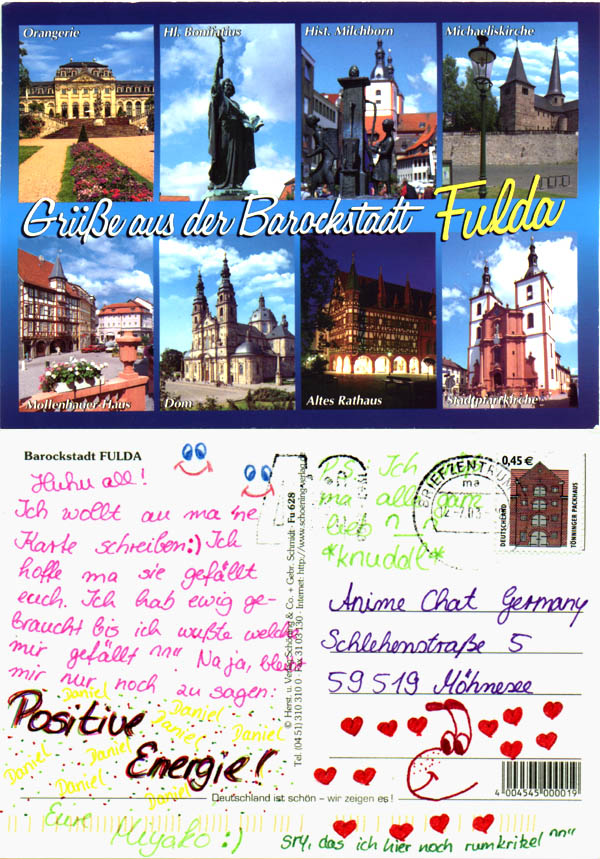 Orangerie
Hl. Bonifatius
Hist. Milchborn
Michaeliskirche
Grüße aus der Barockstadt Fulda
Mollenhauer-Haus
Dom
Altes Rathaus
Stadtpfarrkirche
Barockstadt FULDA
Huhu all!
Ich wollt au ma 'ne
Karte schreiben:) Ich
hoffe ma sie gefällt
euch. Ich hab ewig ge-
braucht bis ich wußte welche
mir gefällt ^^" Naja, bleibt
mir nur noch zu sagen:
Daniel
Daniel
Daniel
Daniel
Daniel
Daniel
Daniel
Daniel
Positive
Energie!
Eure Miyako :)
© Herst. u. Verlag Schöning & Co. + Gebr. Schmidt · Fu 628
Tel. (04 51) 310 310 0 · Fax 31 03 130 · Internet: http://www.schoening-verlag.de
P.S.: Ich
ma alle ganz
lieb ^_^
*knuddl*
BRIEFZENTRUM
ma
0,45 €
DEUTSCHLAND
TÖNNINGER PACKHAUS
Anime Chat Germany
Schlehenstraße 5
59519 Möhnesee
4 004545 000019
Deutschland ist schön – wir zeigen es!
sry, das ich hier noch rumkritkel ^^"